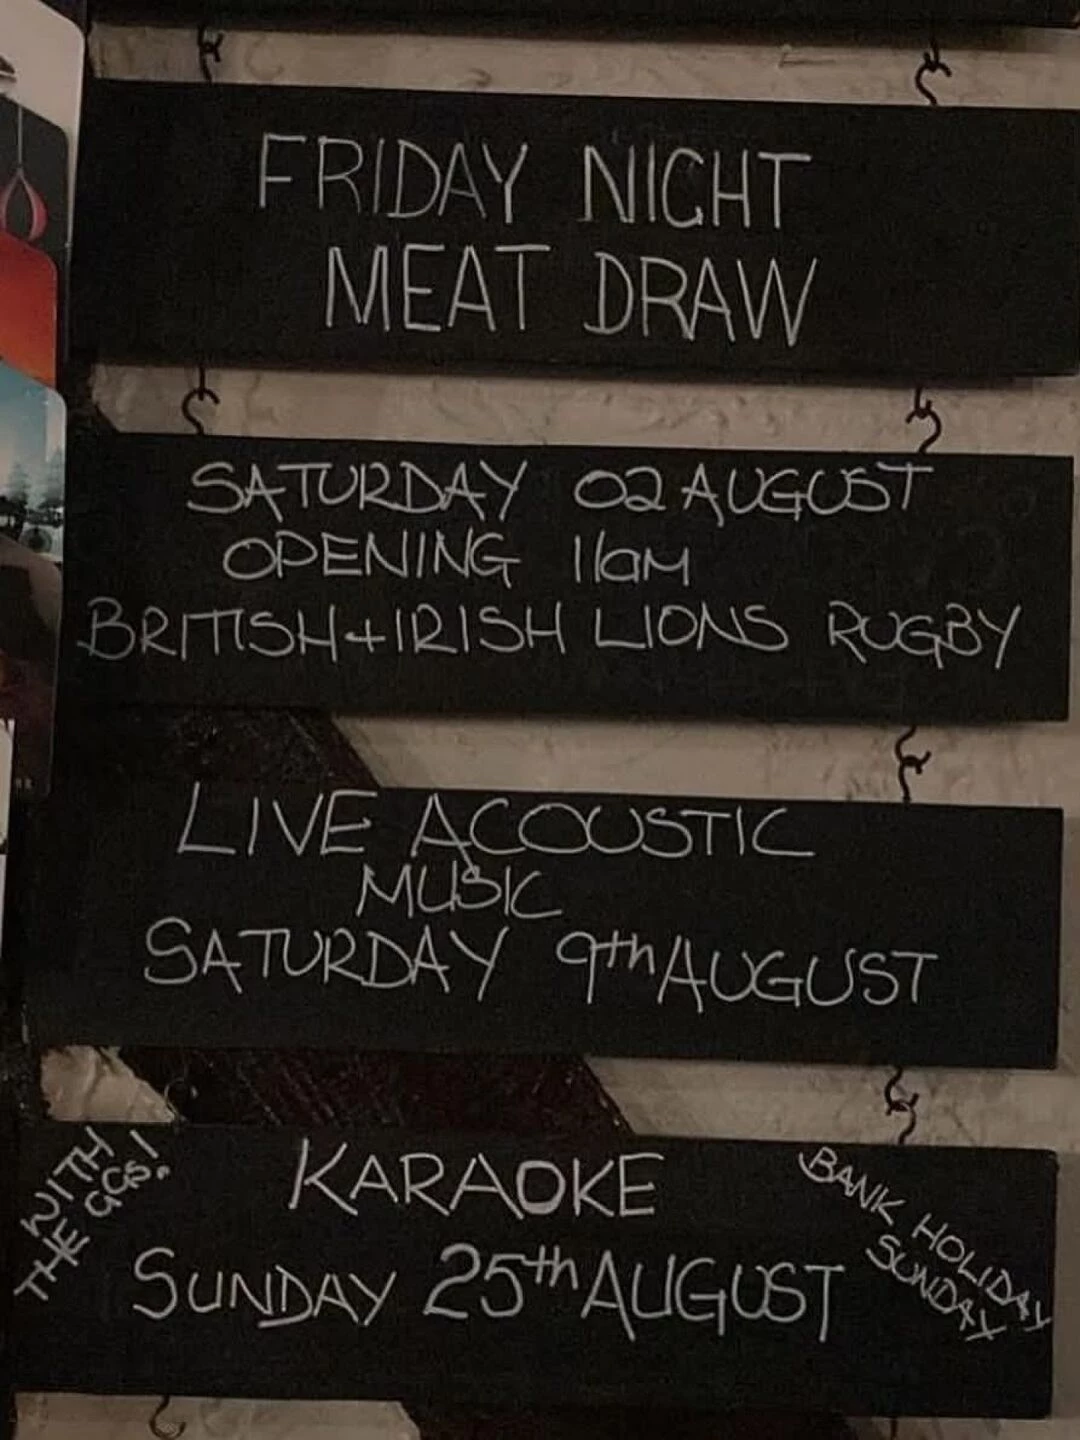 FRIDAY NIGHT
MEAT DRAW
SATURDAY 02 AUGUST
OPENING 11am
BRITISH + IRISH LIONS RUGBY
LIVE ACOUSTIC
MUSIC
SATURDAY 9th AUGUST
WITH
THE GGS!
KARAOKE
SUNDAY 25th AUGUST
BANK HOLIDAY
SUNDAY